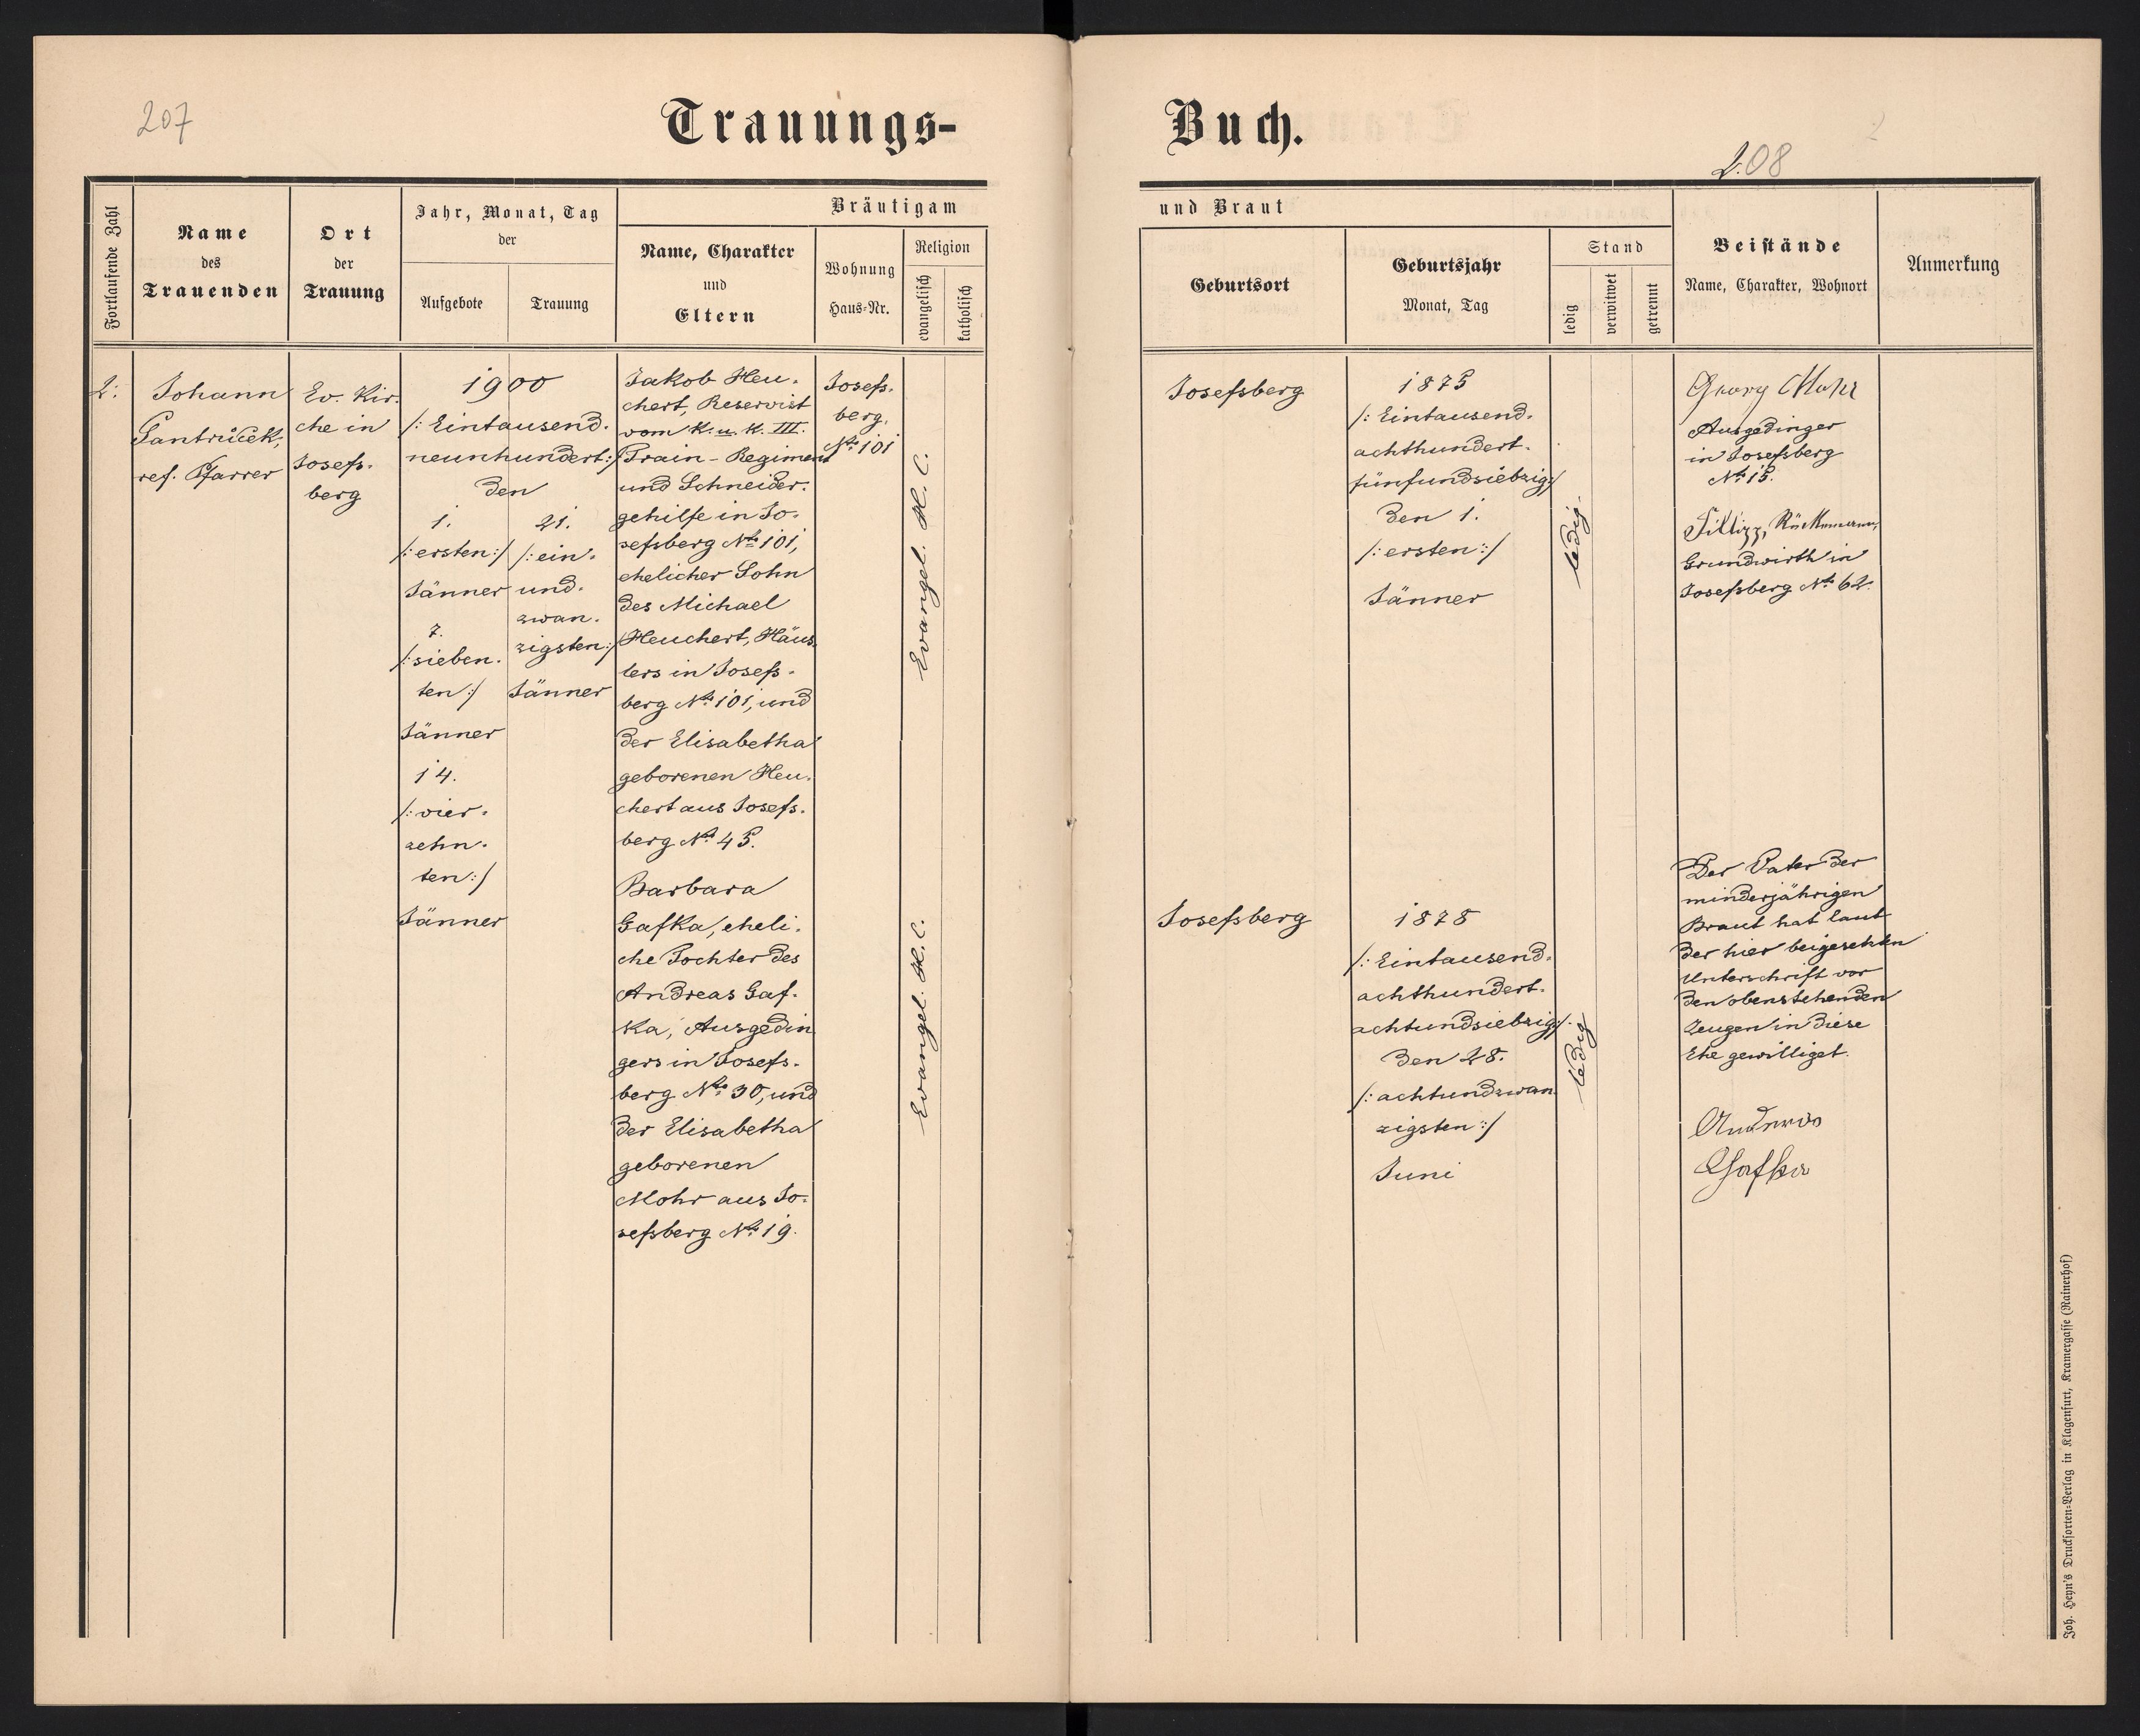 207
Trauungs-
Fortlaufende Zahl
Name
des
Trauenden
Ort
der
Trauung
Jahr, Monat, Tag
der
Aufgebote
Trauung
Bräutigam
Name, Charakter
und
Eltern
Wohnung
Haus-Nr.
Religion
evangelisch
katholisch
2.
Johann
Gantrücek,
ref. Pfarrer
Ev. Kir-
che in
Josefs-
berg
1900
/: Eintausend-
neunhundert :/
den
1.
/: ersten :/
Jänner
7.
/: sieben-
ten :/
Jänner
14.
/: vier-
zehn-
ten :/
Jänner
21.
/: ein-
und-
zwan-
zigsten :/
Jänner
Jakob Heu-
chert, Reservist
vom K. u. K. III.
Train-Regiment
und Schneider-
gehilfe in Jo-
sefsberg No 101,
ehelicher Sohn
des Michael
Heuchert, Häus-
lers in Josefs-
berg No 101, und
der Elisabetha
geborenen Heu-
chert aus Josefs-
berg No 45.
Barbara
Gafka, eheli-
che Tochter des
Andreas Gaf-
ka, Ausgedin
gers in Josefs-
berg No 30, und
der Elisabetha
geborenen
Mohr aus Jo-
sefsberg No 19.
Josefs-
berg,
No 101
Evangel. H. C.
Evangel. H. C.
Buch.
208
und Braut
Geburtsort
Geburtsjahr
Monat, Tag
Stand
ledig
verwitwet
getrennt
Beistände
Name, Charakter, Wohnort
Anmerkung
Josefsberg
1875
/: Eintausend-
achthundert-
fünfundsiebzig :/
den 1.
/: ersten :/
Jänner
ledig
Georg Mohr
Ausgedinger
in Josefsberg
No 15.
Fillipp, Rückemann,
Grundwirth in
Josefsberg No 62.
Josefsberg
1878
/: Eintausend-
achthundert-
achtundsiebzig :/
den 28.
/: achtundzwan
zigsten :/
Juni
ledig
Der Vater der
minderjährigen
Braut hat laut
der hier beigesetzten
Unterschrift vor
den obenstehenden
Zeugen in diese
Ehe gewilliget.
Andreas
Gafka
Joh. Heyn's Drucksorten-Verlag in Klagenfurt, Kramergasse (Rainerhof)